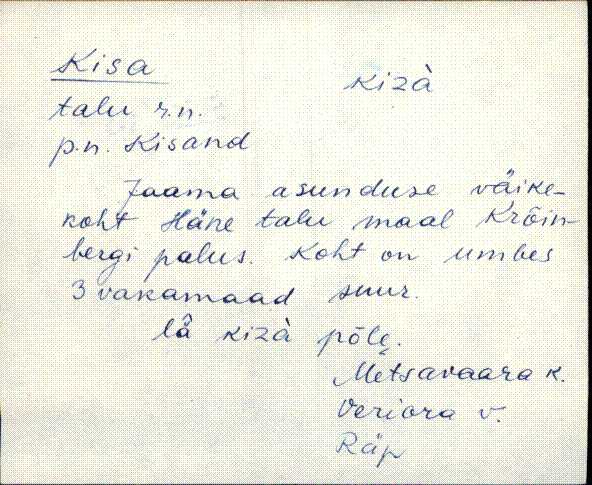 Kisa kizà
talu r.n.
p.n. Kisand
Jaama asunduse väike-
koht Häne talu maal Krõin-
bergi palus. Koht on umbes
3 vakamaad suur.
lǟ kizà põlẹ.
Metsavaara k.
Veriora v.
Räp